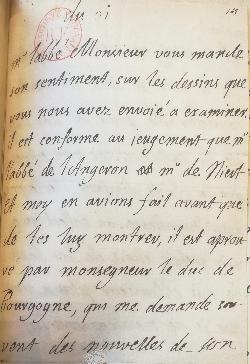 du ci
mr l'abbé Monsieur vous mande
son sentiment, sur les dessins que
vous nous avez envoié a examiner,
il est conforme au jeugement que mr
l'abbé de l'Angeron et mr de Nieif-
et moy en avions fait avant que
de les luy montrer, il est aprou
vé par monseigneur le duc de
Bourgogne, qui me demande sou
vent des nouvelles de son